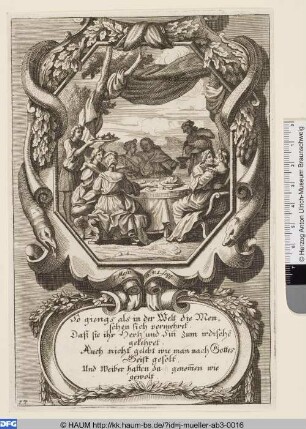 So giengs als in der Welt die Men,
schen sich vermehret
Daß sie ihr Hertz und Sin zum irdischē
gekehret
Auch nicht gelebt wie man nach Gottes
Geist gesolt
Und Weiber hatten da genom̄en wie
gewolt
© Herzog Anton Ulrich-Museum Braunschweig
DFG
© HAUM http://kk.haum-bs.de/?id=j-mueller-ab3-0016